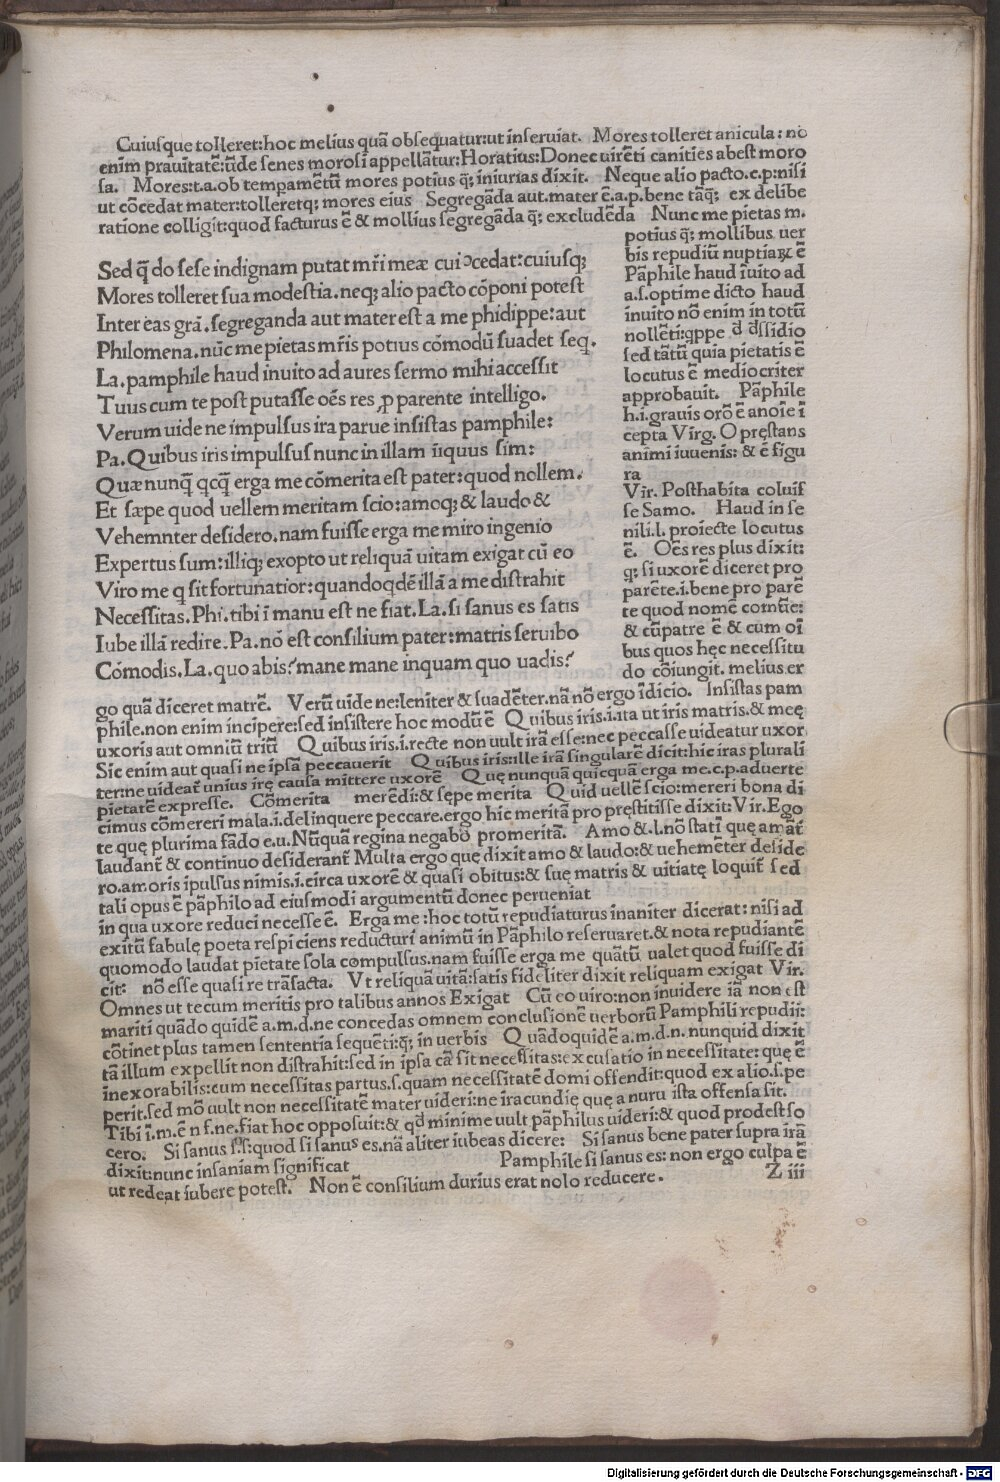 Cuiusque tolleret:hoc melius quā obsequatur:ut inseruiat. Mores tolleret anicula: no
enim prauitatē:ūde senes morosi appellātur:Horatius:Donec uirēti canities abest moro
sa. Mores:t.a.ob tempamētū mores potius q̃; iniurias dixit. Neque alio pacto.c.p:nisi
ut cōcedat mater:tolleretq; mores eius Segregāda aut.mater ē.a.p.bene tāq̃; ex delibe
ratione colligit:quod facturus ē & mollius segregāda q̃; excludēda Nunc me pietas m.
potius q̃; mollibus uer
bis repudiū nuptiaꝝ ē
Pāphile haud īuito ad
a.s.optime dicto haud
inuito nō enim in totū
nollēti:qppe đ đssidio
sed tātū quia pietatis ē
locutus ē mediocriter
approbauit. Pāphile
h.i.grauis orō ē anoīe ī
cepta Virg. O pręstans
animi iuuenis: & ē figu
ra
Vir. Posthabita coluis
se Samo. Haud in se
nili.l. proiecte locutus
ē. Oēs res plus dixit:
q; si uxorē diceret pro
parēte.i.bene pro parē
te quod nomē comūe:
& cūpatre ē & cum oī
bus quos hęc necessitu
do cōiungit. melius er
Sed q̄ do sese indignam putat mr̄i meæ cui ɔcedat:cuiusq;
Mores tolleret sua modestia.neq; alio pacto cōponi potest
Inter eas grā.segreganda aut mater est a me phidippe:aut
Philomena.nūc me pietas mr̄is potius cōmodū suadet seq.
La.pamphile haud inuito ad aures sermo mihi accessit
Tuus cum te post putasse oēs res ꝓ parente intelligo.
Verum uide ne impulsus ira parue insistas pamphile:
Pa.Quibus iris impulsus nunc in illam iīquus sim:
Quæ nunq̄ qcq̄ erga me cōmerita est pater:quod nollem.
Et sæpe quod uellem meritam scio:amoq; & laudo &
Vehemnter desidero.nam fuisse erga me miro ingenio
Expertus sum:illiq; exopto ut reliquā uitam exigat cū eo
Viro me q sit fortunatior:quandoqdē illā a me distrahit
Necessitas.Phi.tibi ī manu est ne fiat.La.si sanus es satis
Iube illā redire.Pa.nō est consilium pater:matris seruibo
Cōmodis.La.quo abis?mane mane inquam quo uadis?
go quā diceret matrē. Verū uide ne:leniter & suadēter.nā nō ergo īdicio. Insistas pam
phile.non enim incipere:sed insistere hoc modū ē Quibus iris.i.ita ut iris matris.& meę
uxoris aut omniū triū Quibus iris.i.recte non uult irā esse:nec peccasse uideatur uxor
Sic enim aut quasi ne ipsā peccauerit Quibus iris:ille irā singularē dicit:hic iras plurali
ter:ne uideat̄ unius irę causa mittere uxorē Quę nunquā quicquā erga me.c.p.aduerte
pietatē expresse. Cōmerita merēdi:& sępe merita Quid uellē scio:mereri bona di
cimus cōmereri mala.i.delinquere peccare.ergo hic meritā pro pręstitisse dixit:Vir.Ego
te quę plurima fādo e.u.Nūquā regina negabo promeritā. Amo & .l.nō statī quę amāt
laudant & continuo desiderant̄ Multa ergo quę dixit amo & laudo:& uehemēter deside
ro.amoris īpulsus nimis.i.circa uxorē & quasi obitus:& suę matris & uitiatę loquit̄ sed
tali opus ē pāphilo ad eiusmodi argumentū donec perueniat
in qua uxore reduci necesse ē. Erga me:hoc totū repudiaturus inaniter dicerat:nisi ad
exitū fabulę poeta respiciens reducturi animū in Pāphilo reseruaret.& nota repudiantē
quomodo laudat pietate sola compulsus.nam fuisse erga me quātū ualet quod fuisse di
cit: nō esse quasi re trāsacta. Vt reliquā uitā:satis fideliter dixit reliquam exigat Vir.
Omnes ut tecum meritis pro talibus annos Exigat Cū eo uiro:non inuidere iā non est
mariti quādo quidē a.m.d.ne concedas omnem conclusionē uerborū Pamphili repudii:
cōtinet plus tamen sententia sequēti:q̃; in uerbis Quādoquidē a.m.d.n.nunquid dixit
tā illum expellit non distrahit:sed in ipsa cā sit necessitas:excusatio in necessitate: quę ē
inexorabilis:cum necessitas partus.s.quam necessitatē domi offendit:quod ex alio.s.pe
perit.sed mō uult non necessitatē mater uideri:ne iracundię que a nuru ista offensa sit.
Tibi ī.m.ē n f.ne.fiat hoc opposuit:& qđ minime uult pāphilus uideri:& quod prodest so
cero. Si sanus s.s:quod si sanus es.nā aliter iubeas dicere: Si sanus bene pater supra irā
dixit:nunc insaniam significat Pamphile si sanus es: non ergo culpa ē
ut redeat iubere potest. Non ē consilium durius erat nolo reducere. Z iii
Digitalisierung gefördert durch die Deutsche Forschungsgemeinschaft - DFG